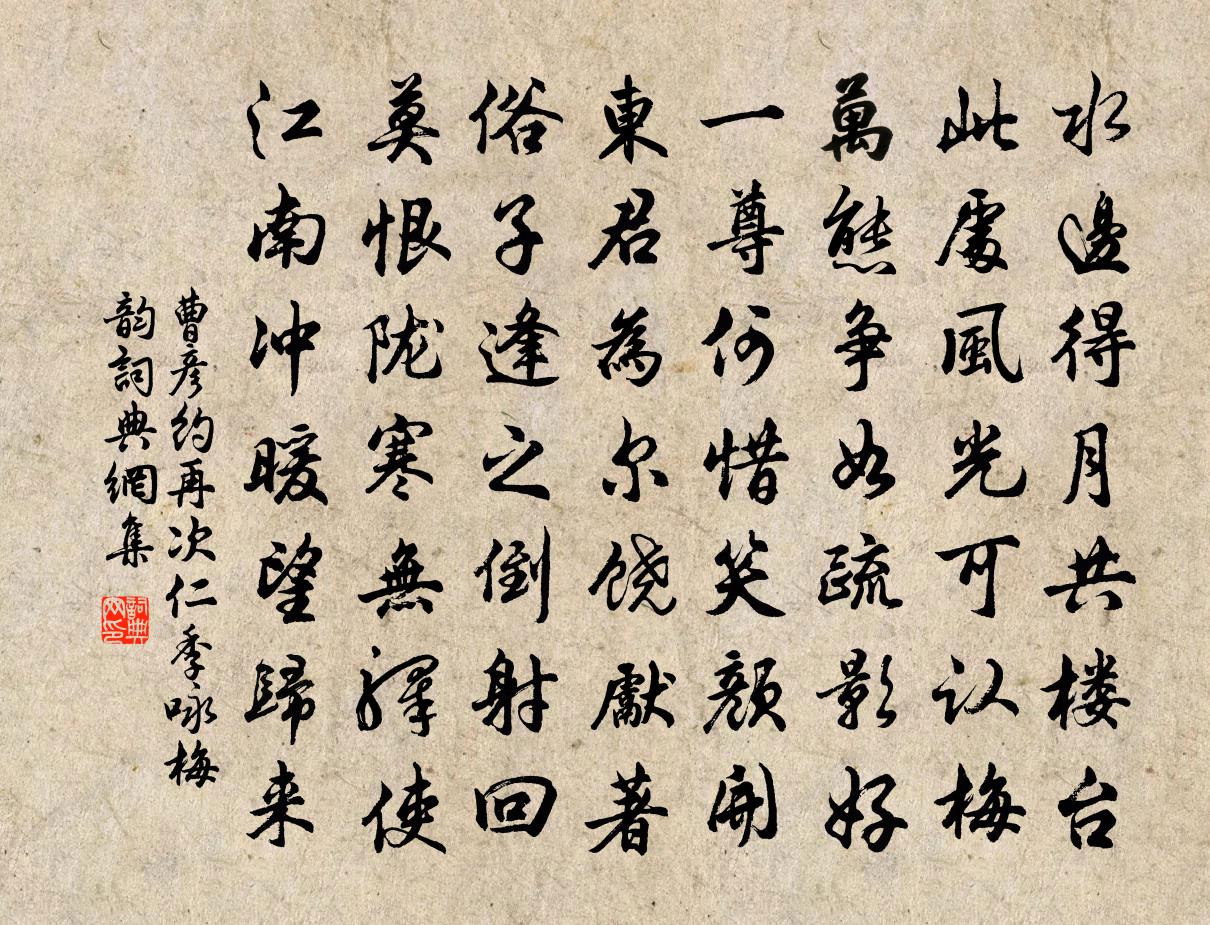 水邊得月共楼台
此處風光可认梅
萬態争如疏影好
一尊何惜笑颜開
東君為尔饶獻著
俗子逢之倒射回
莫恨陇寒無驛使
江南冲暖望歸来
曹彦约再次仁季咏梅
韵詞典網集
詞典网印